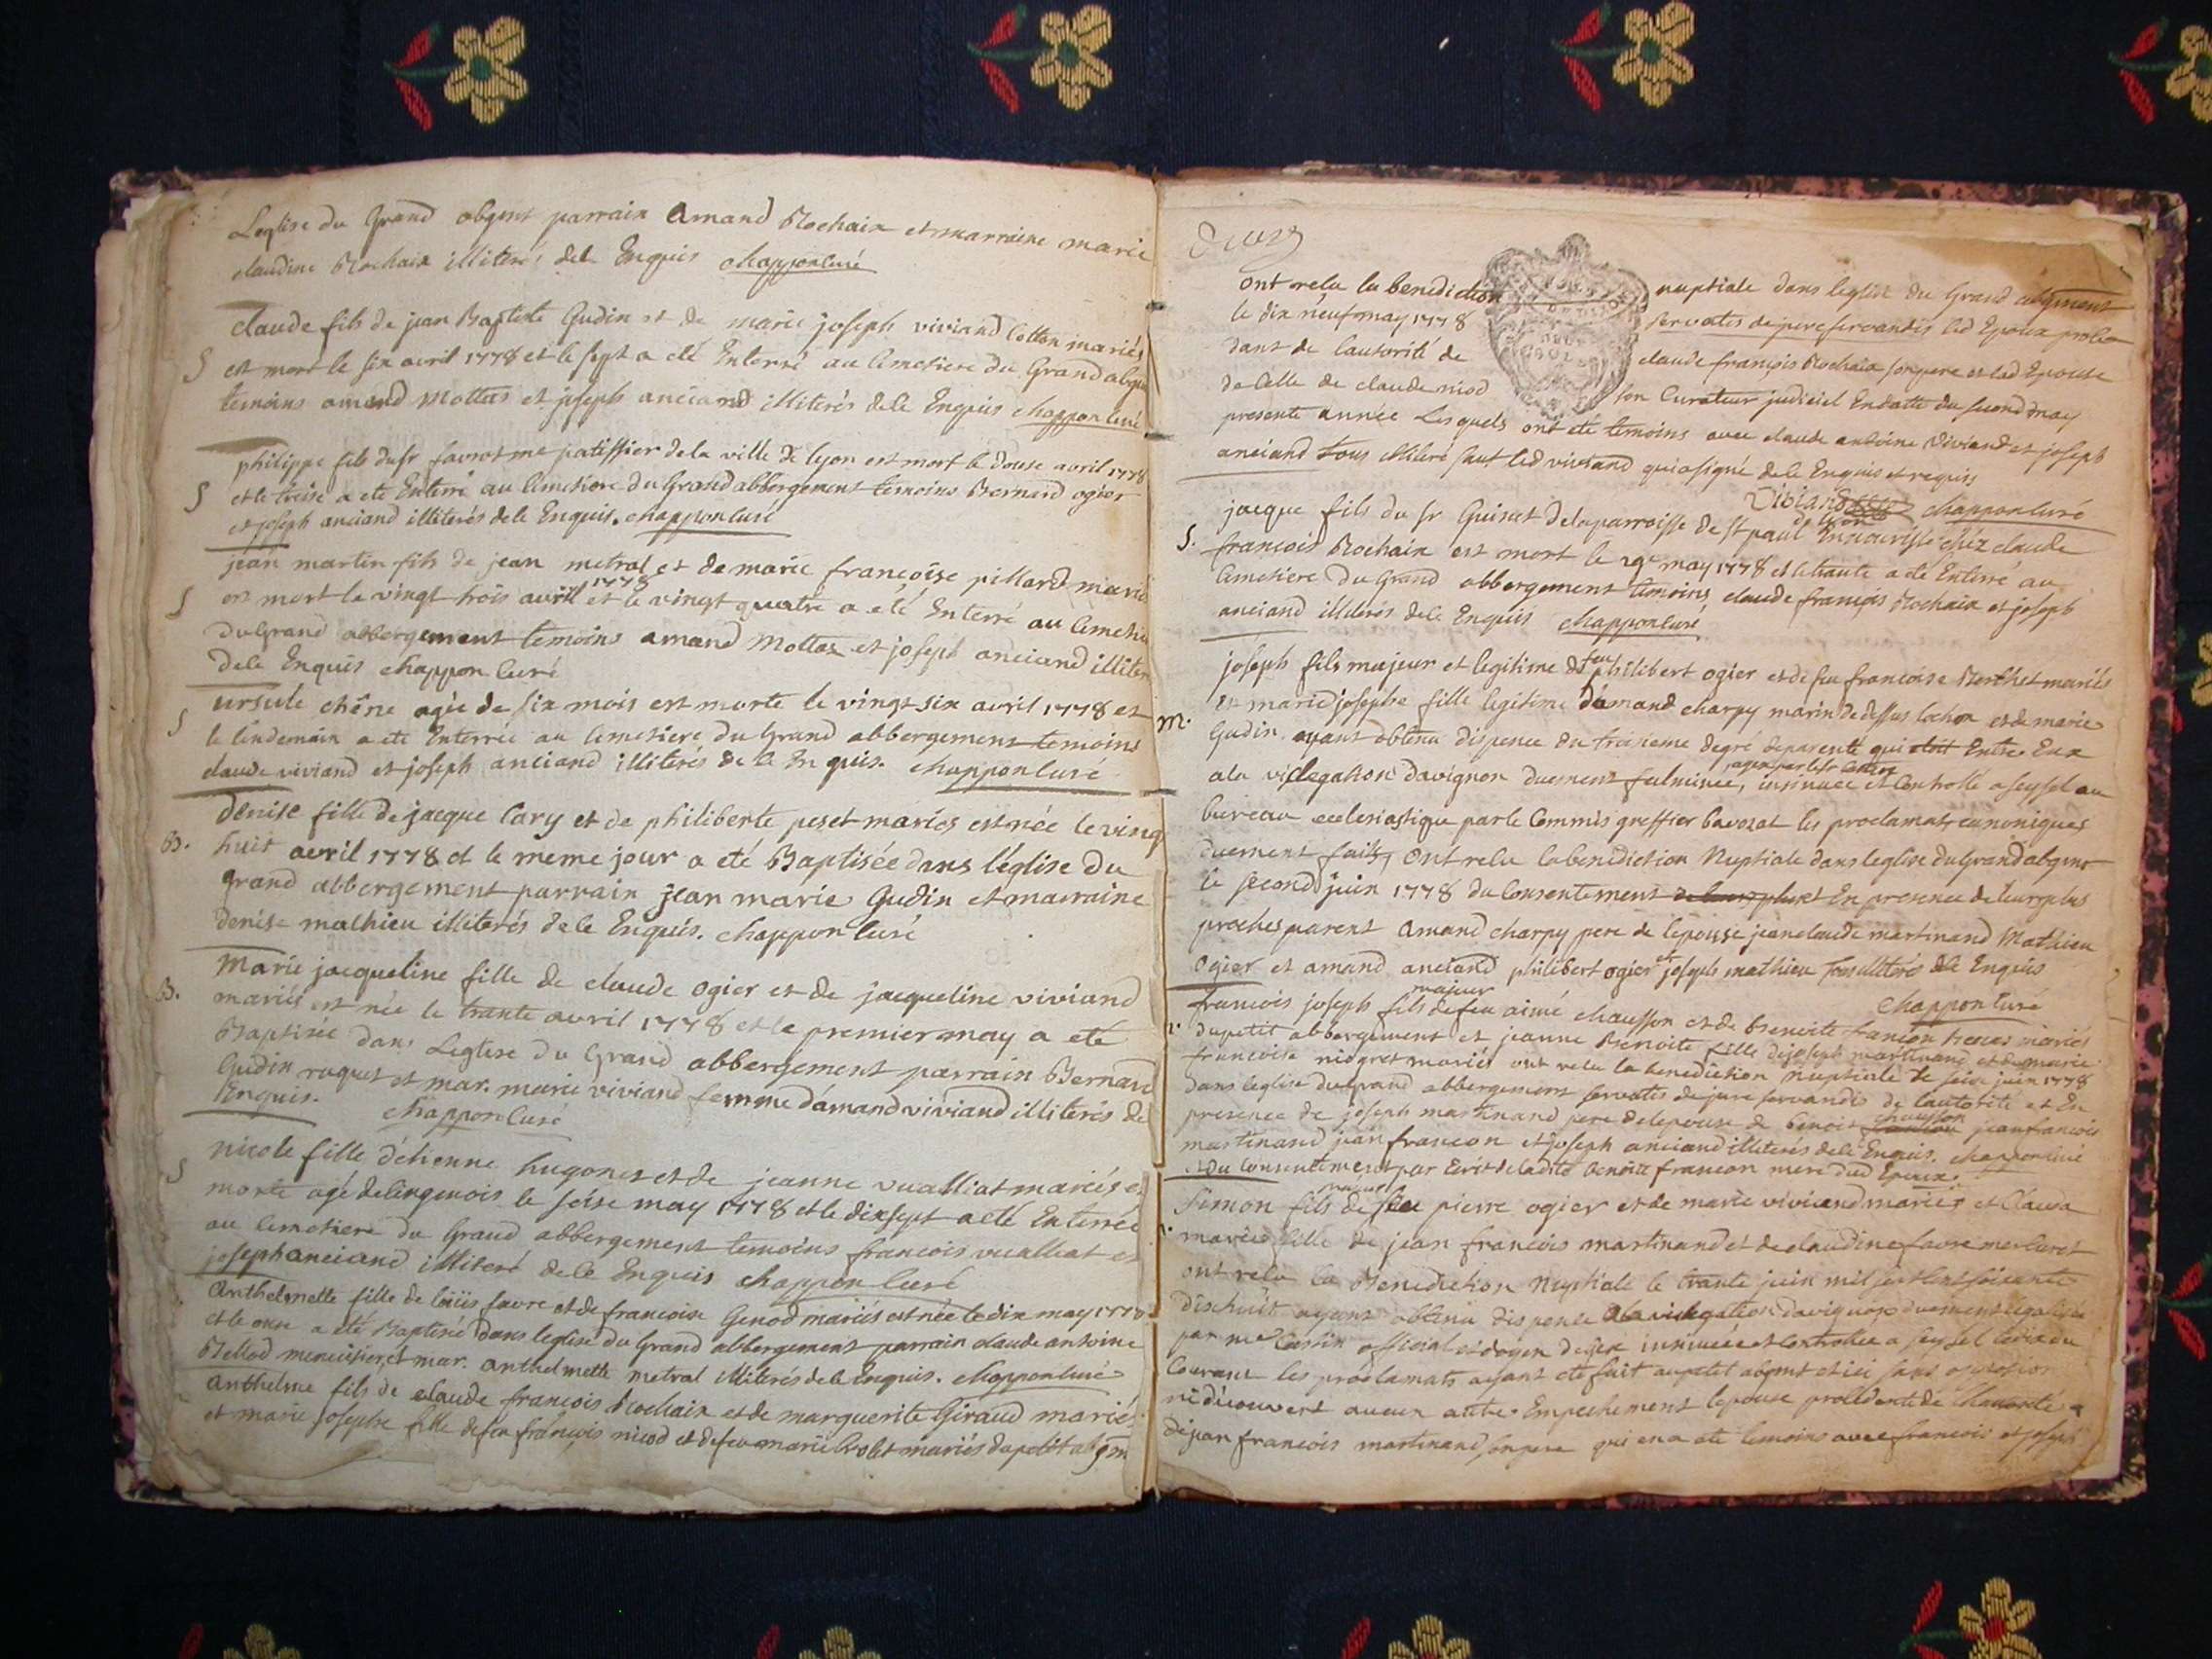 Leglise du Grand abgent parrain Amand Rochaix et marraine marie
claudine Rochaix illiterés de le Enquis chappon curé
claude fils de jean Baptiste Gudin et de marie joseph viviand cotton mariés
S est mort le six avril 1778 et le sept a eté Enterré au cimetiere du Grand abge
temoins amand Mottas et joseph anciand illiterés de le Enquis chappon curé
philippe fils du sr favrot me patissier de la ville de lyon est mort le douse avril 1778
S et le treise a eté Enterré au cimetiere du Grand abbergement temoins Bernard ogier
et joseph anciand illiterés de le Enquis. chappon curé
jean martin fils de jean metral et de marie françoise pillard mariés
1778
S est mort le vingt trois avril et le vingt quatre a eté Enterré au cimetie
du Grand abbergement temoins amand Mottaz et joseph anciand illiter
de le Enquis chappon curé
ursule chêne agée de six mois est morte le vingt six avril 1778 et
S le lindemain a eté Enterrée au cimetiere du Grand abbergement temoins
claude viviand et joseph anciand illiterés de le Enquis. chappon curé
denise fille de jacque Cary et de philiberte peset mariés est née le ving
B. huit avril 1778 et le meme jour a eté Baptisée dans l'église du
grand abbergement parrain jean marie Gudin et marraine
denise mathieu illiterés de le Enquis. chappon curé
Marie jacqueline fille de claude ogier et de jacqueline viviand
B. mariés est née le trante avril 1778 et le premier may a eté
Baptisée dans Leglise du Grand abbergement parrain Bernard
Gudin roquet et mar. marie viviand femme d'amand viviand illiterés de
Enquis. chappon curé
nicole fille d'etienne hugonet et de jeanne vualliat mariés e
S morte agé de cinq mois le seise may 1778 et le dixsept a eté Enterrée
au cimetiere du Grand abbergement temoins francois vualliat et
joseph anciand illiteré de le Enquis chappon curé
Anthelmette fille de loüis favre et de francoise Genod mariés est née le dix may 1778
et le onse a eté Baptisée dans leglise du Grand abbergement parrain claude antoine
Bellod menuisier et mar. anthelmette metral illiterés de le Enquis. chappon curé
Anthelme fils de claude françois Rochaix et de marguerite Giraud mariés
et marie josephe fille de feu françois niod et de feu marie mariés du petit abgm
ont recu la benediction nuptiale dans leglise du Grand abgment
le dix neuf may 1778 servatis de jure servandis led Epoux proce
dant de lautorité de claude françois Rochaix son pere et lad Epouse
de Celle de claude niod son Curateur judiciel En datte du second may
presente année Lesquels ont eté temoins avec claude antoine viviand et joseph
anciand tous illiteré sauf led viviand qui a signé de le Enquis et requis
Viviand chappon curé
jacque fils du sr Guinet de la parroisse de st paul de lyon En nourisse chéz claude
S. francois Rochaix est mort le 29e may 1778 et le trante a eté Enterré au
cimetiere du Grand abbergement temoins claude françois Rochaix et joseph
anciand illiterés de le Enquis chappon curé
joseph fils majeur et legitime de feu philibert ogier et de feu francoise Berthet mariés
M. et marie josephe fille legitime d'amand charpy marin de dessus lochon et de marie
Gudin ayant obtenu dispence du troisieme degré de parenté qui etoit Entre Eux
a la vicelegation davignon duement fulminée, insinuée et controllé a seyssel au
bureau ecclesiastique par le Commis greffier bavozat les proclamats canoniques
duement faits, ont recu la benediction Nuptiale dans leglise du Grand abgent
le second juin 1778 du Consentement et En presence de leurs plus
proches parent amand charpy pere de lepouse jean claude martinand Mathieu
ogier et amand anciand philibert ogier et joseph mathieu tous illiterés de le Enquis
chappon curé
majeur
francois joseph fils de feu aimé chausson et de benoite francon mariés
du petit abbergement et jeanne Benoite fille de joseph martinand et de marie
francoise niogret mariés ont recu la benediction nuptiale le seise juin 1778
dans leglise du grand abbergement servatis de jure servandis de lautorité et En
presence de joseph martinand pere de lepouse de benoit chausson jean francois
martinand jean francon et joseph anciand illiterés de le Enquis. chappon curé
et du Consentement par Ecrit de ladite benoite francon mere dud Epoux.
majeur
Simon fils de feu pierre ogier et de marie viviand mariés et Clauda
marie fille de jean francois martinand et de claudine favre mercuret
ont recu la Benediction Nuptiale le trante juin mil sept cent soixante
dixhuit ayant obtenu dispence a la vicelegation davignon duement legalisée
par me Castin official et doyen de gex insinuée et controllee a seyssel le du
Courant les proclamats ayant eté fait au petit abgmt et ici sans oposition
ni découvert aucun autre Empechement lepouse procedente de lhautorité
de jean francois martinand son pere qui en a eté temoins avec francois et joseph